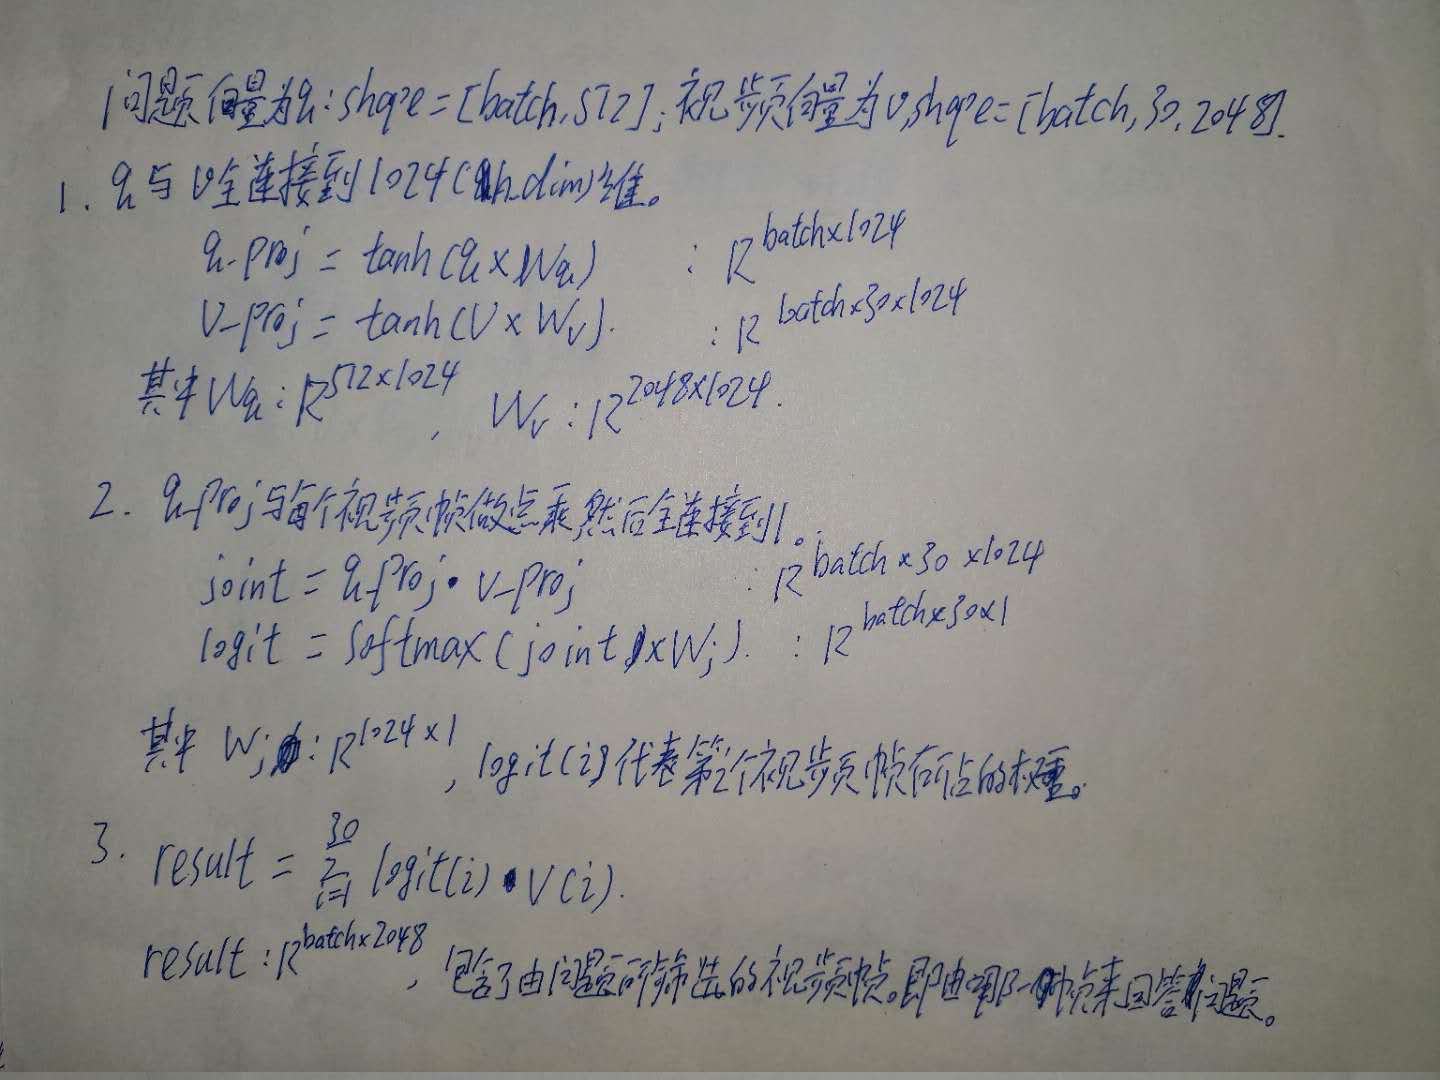 问题向量为q:shape=[batch,512];视频向量为v,shape=[batch,30,2048].
1. q与v全连接到1024(h_dim)维。
q_proj = tanh(q×Wq) : R^batch×1024
v_proj = tanh(V×Wv). : R^batch×30×1024
其中Wq:R^512×1024, Wv:R^2048×1024.
2. q_proj与每个视频帧做点乘,然后全连接到1。
joint = q_proj·v_proj : R^batch×30×1024
logit = softmax(joint×Wj). : R^batch×30×1
其中 Wj:R^1024×1, logit(i)代表第i个视频帧所占的权重。
3. result = ∑_{i=1}^{30} logit(i)·V(i).
result:R^batch×2048, 包含了由问题所筛选的视频帧。即由哪一帧来回答问题。